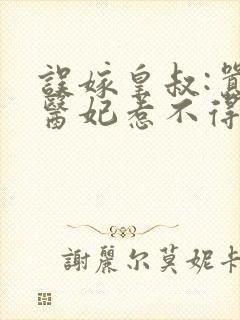 誤嫁皇叔:
醫妃惹不得
謝麗尔莫妮卡